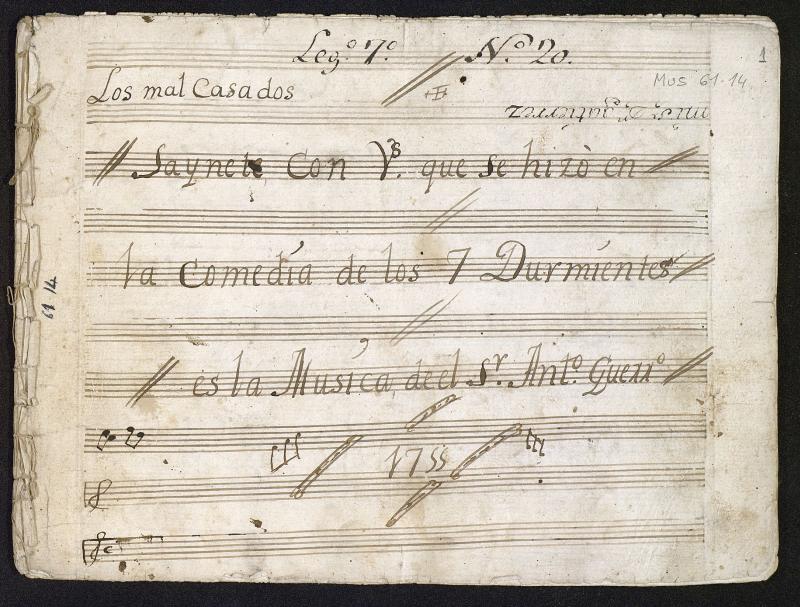 Leg.º 7.º Nº 20.
1
Mus 61-14
Los mal Casados
Saynete Con Vs. que se hizò en
la Comedia de los 7 Durmientes
es la Musica, de el Sr. Antº. Guerrº
1755
61 14